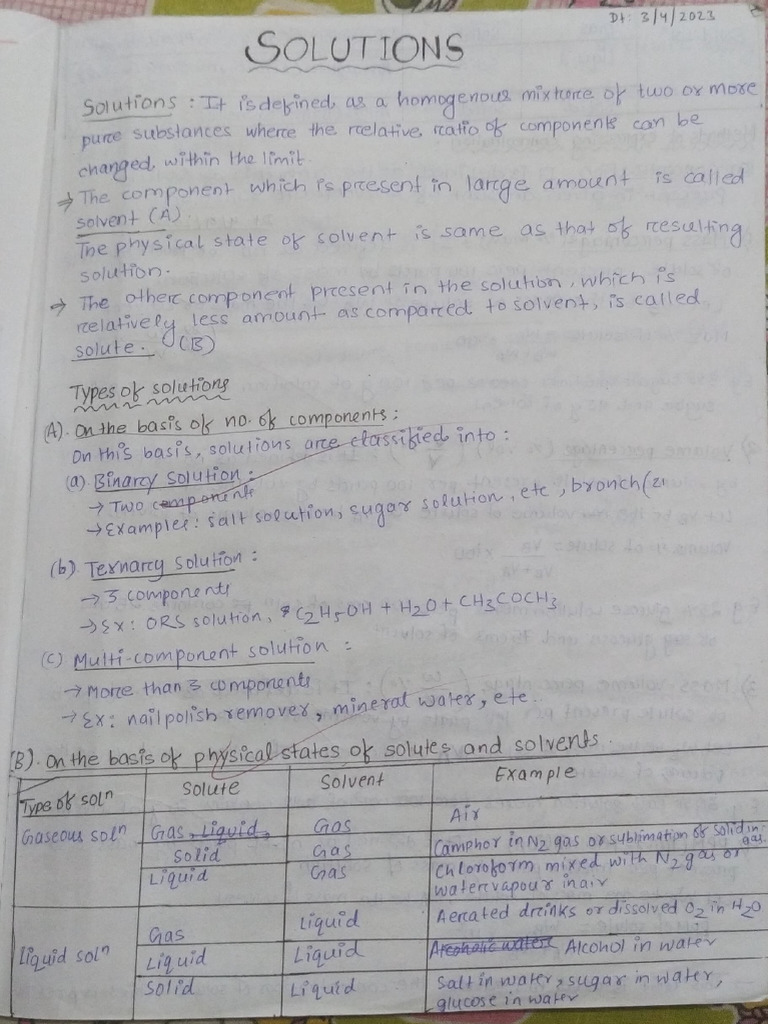 Dt: 3/4/2023
SOLUTIONS
Solutions : It is defined as a homogenous mixture of two or more
pure substances where the relative ratio of components can be
changed within the limit.
⇒ The component which is present in large amount is called
solvent (A)
The physical state of solvent is same as that of resulting
solution.
⇒ The other component present in the solution, which is
relatively less amount as compared to solvent, is called
solute. (B)
Types of solutions
(A). On the basis of no. of components :
On this basis, solutions are classified into :
(a) Binary solution :
→ Two components
→ Examples: salt solution, sugar solution, etc, bronch
(b). Ternary solution :
→ 3 components
→ Ex: ORS solution, C2H5OH + H2O + CH3COCH3
(c) Multi-component solution :
→ More than 3 components
→ Ex: nail polish remover, mineral water, etc.
(B). On the basis of physical states of solutes and solvents.
Type of solⁿ Solute Solvent Example
Gaseous solⁿ Gas, Liquid, Gas Air
Solid Gas Camphor in N2 gas or sublimation of solid in gas
Liquid Gas Chloroform mixed with N2 gas or
water vapour in air
Gas Liquid Aerated drinks or dissolved O2 in H2O
Liquid solⁿ Liquid Liquid Alcohol in water
Solid Liquid Salt in water, sugar in water,
glucose in water